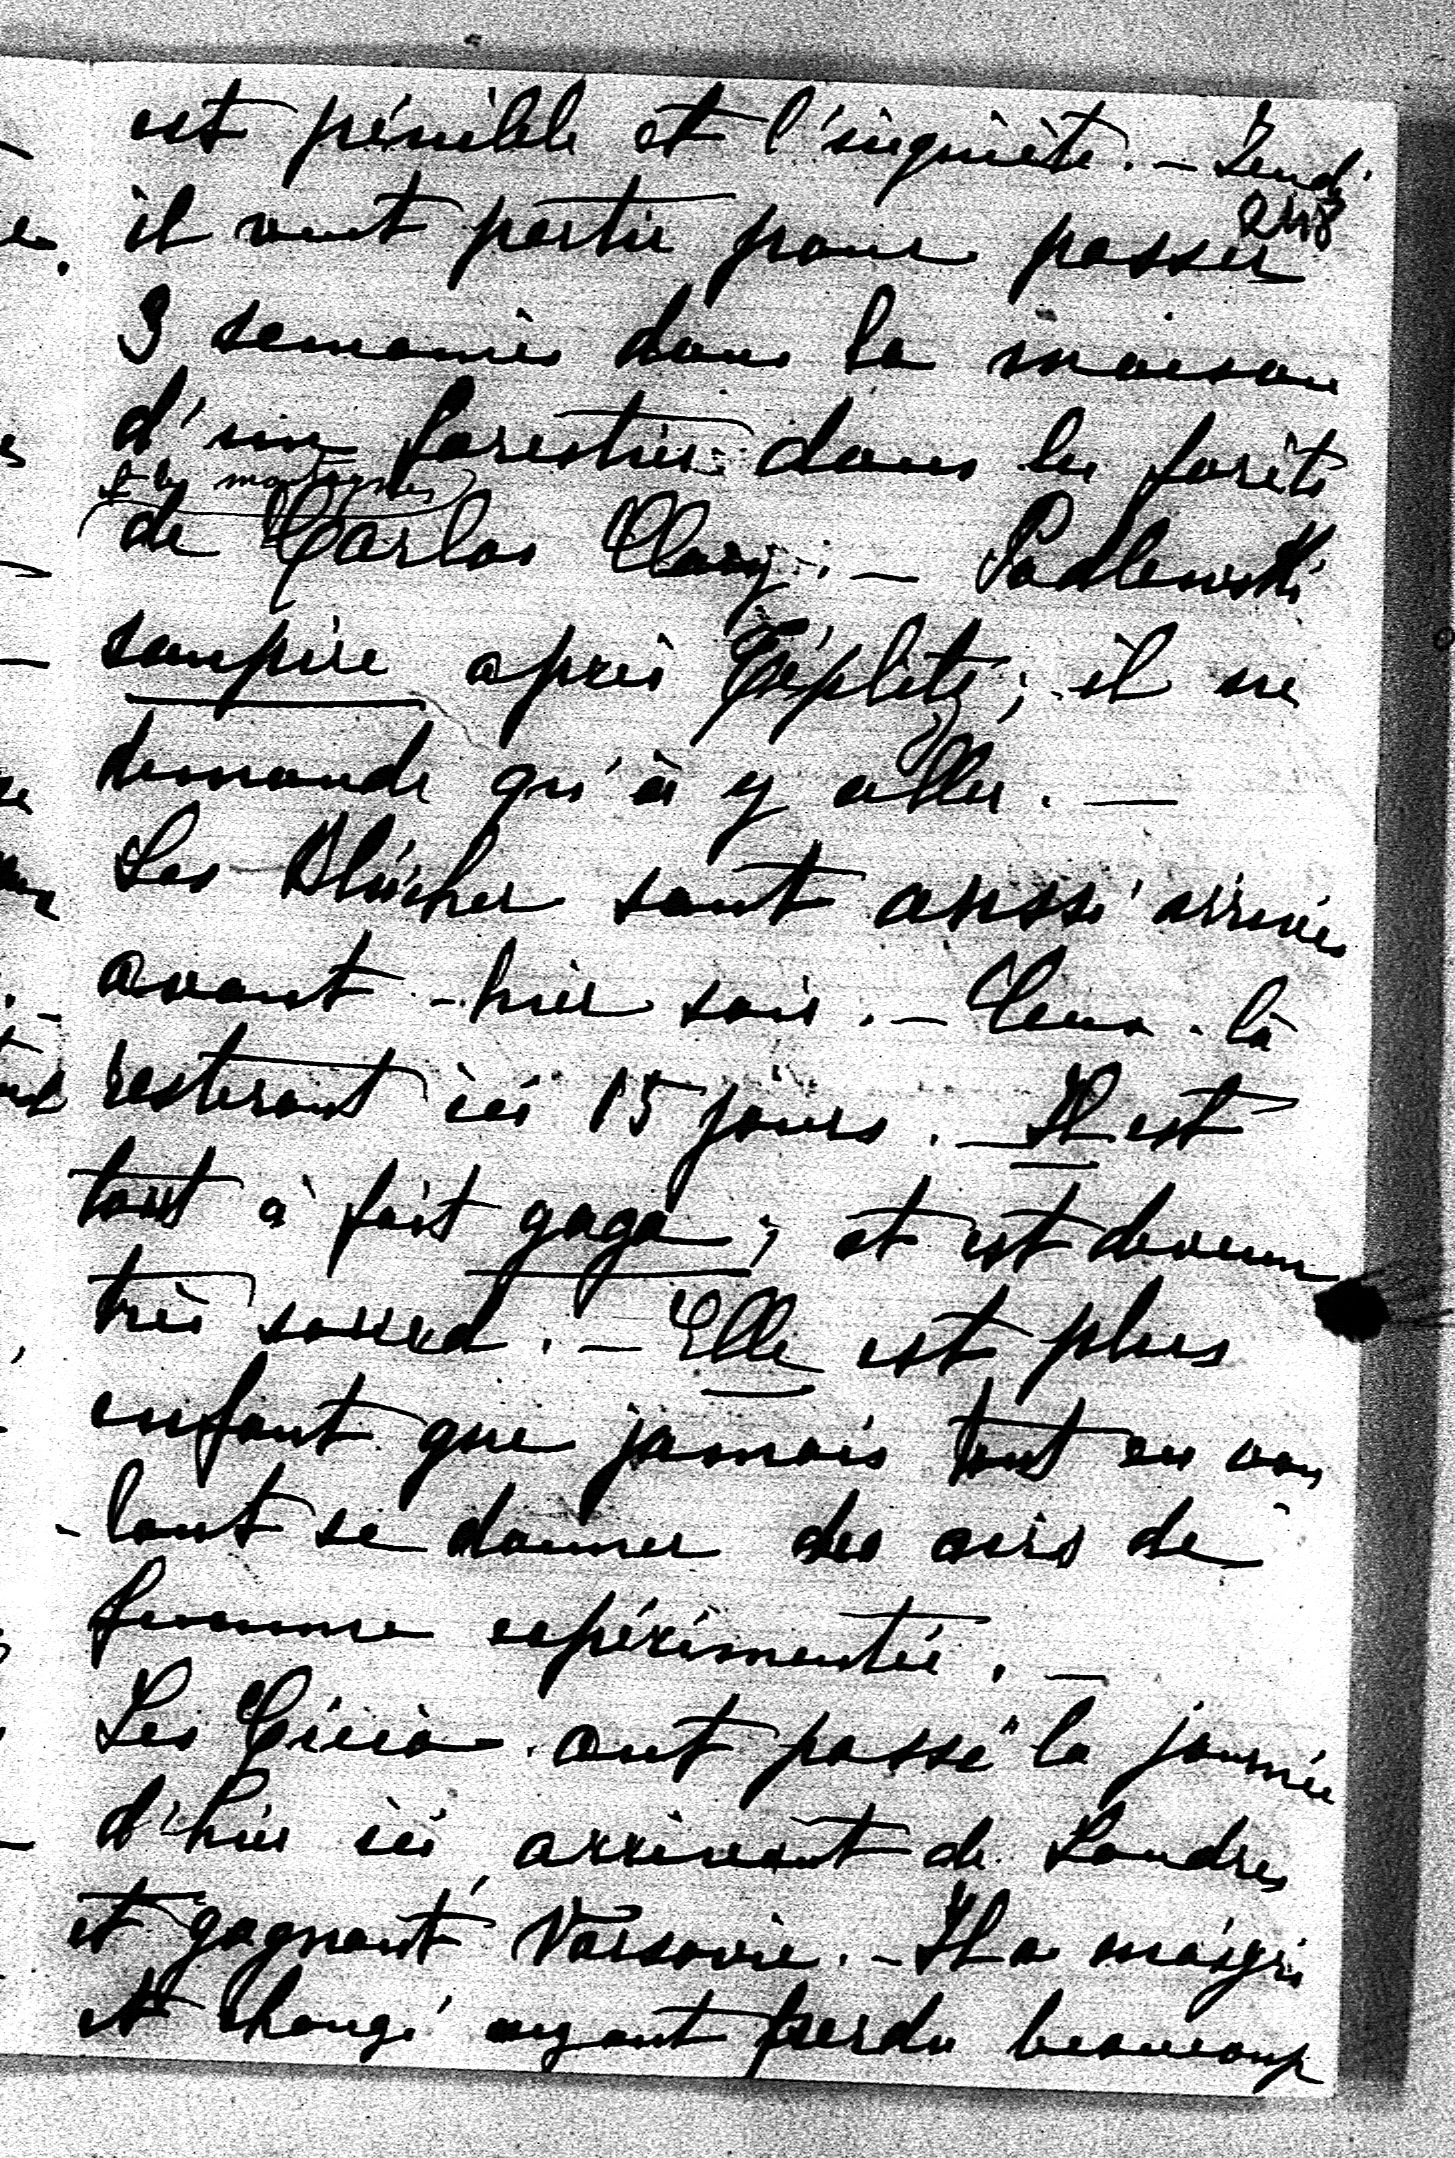 est pénible et l'inquiète. — Jeudi
248
il veut partir pour passer
3 semaines dans la maison
d'un forestier dans les forêts
et les montagnes
de Carlos Clary. — Podlewski
soupire après Tëplitz; il ne
demande qu'à y aller. —
Les Blücher sont aussi arrivés
avant-hier soir. — Ceux-là
resteront ici 15 jours. — Il est
tout à fait gaga; et est devenu
très sourd. — Elle est plus
enfant que jamais tout en vou
-lant se donner des airs de
femme expérimentée. —
Les ont passé la journée
d'hier ici arrivant de Londres
et gagnant Varsovie. — Il a maigri
et changé ayant perdu beaucoup